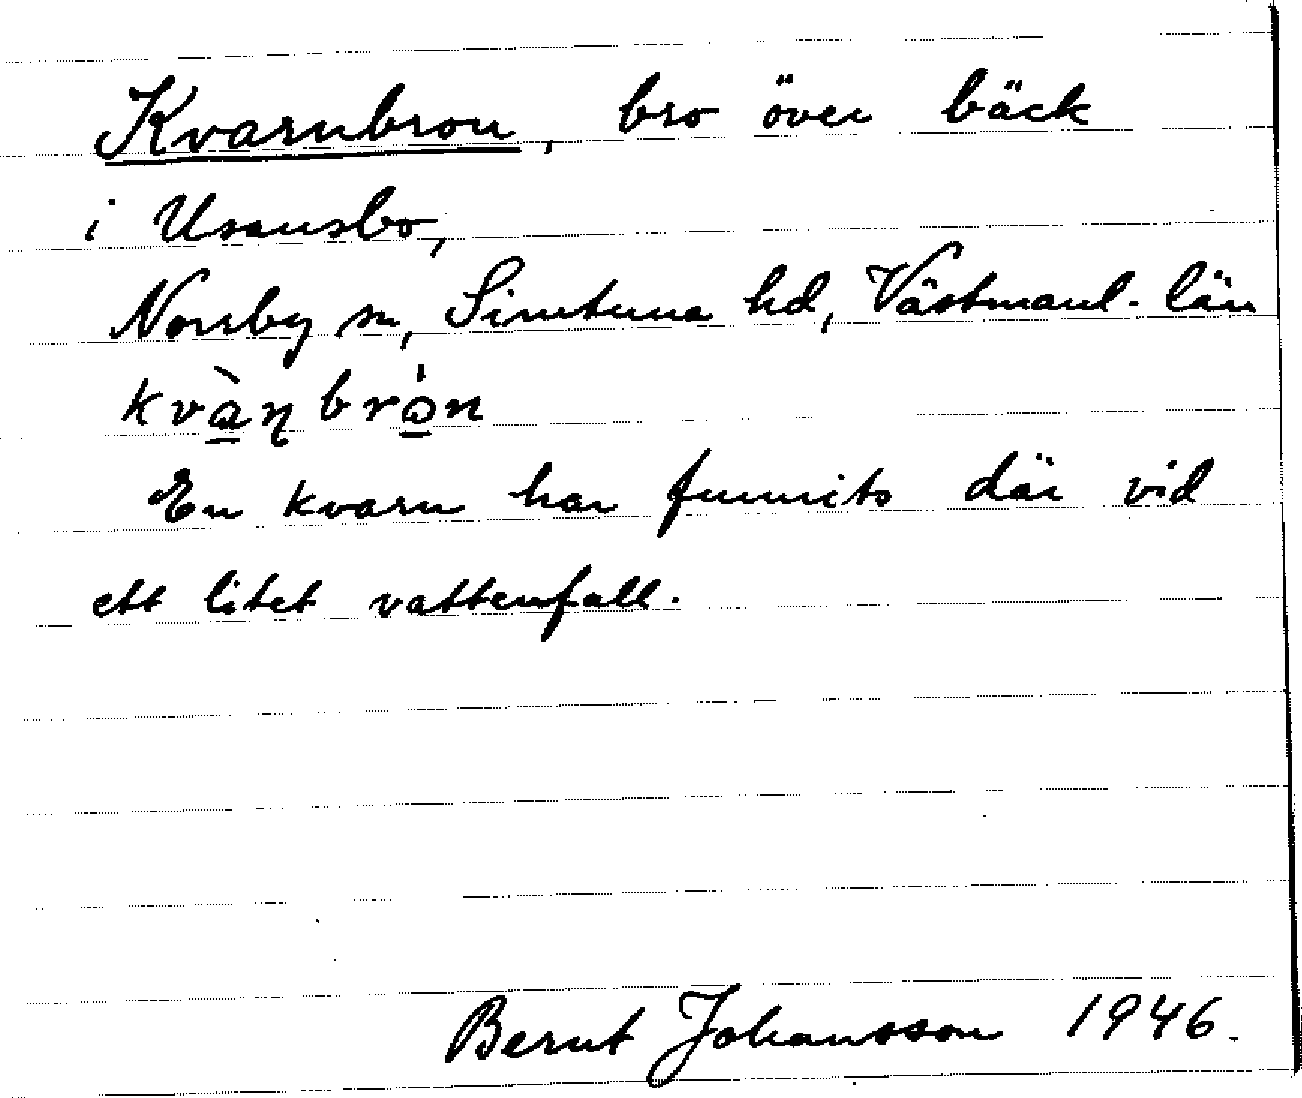 Kvarnbron, bro över bäck
i Usansbo,
Norrby sn, Simtuna hd, Västmanl. län
kvàɳbrón
En kvarn har funnits där vid
ett litet vattenfall.
Bernt Johansson 1946.